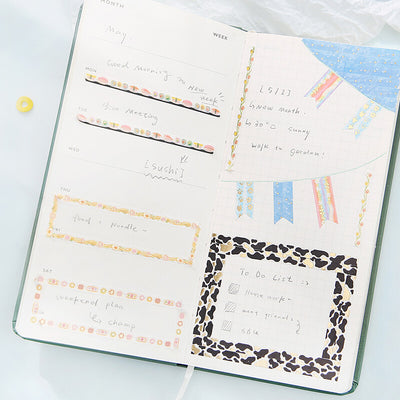 MONTH
WEEK
May
MON
Good morning to
new
week
TUE
Meeting
WED
[sushi]
THU
food + noodle ~
FRI
SAT
weekend plan
& champ
[5/2]
↳ New month.
↳ 30°C sunny
walk to garden!
To Do List :-)
House work